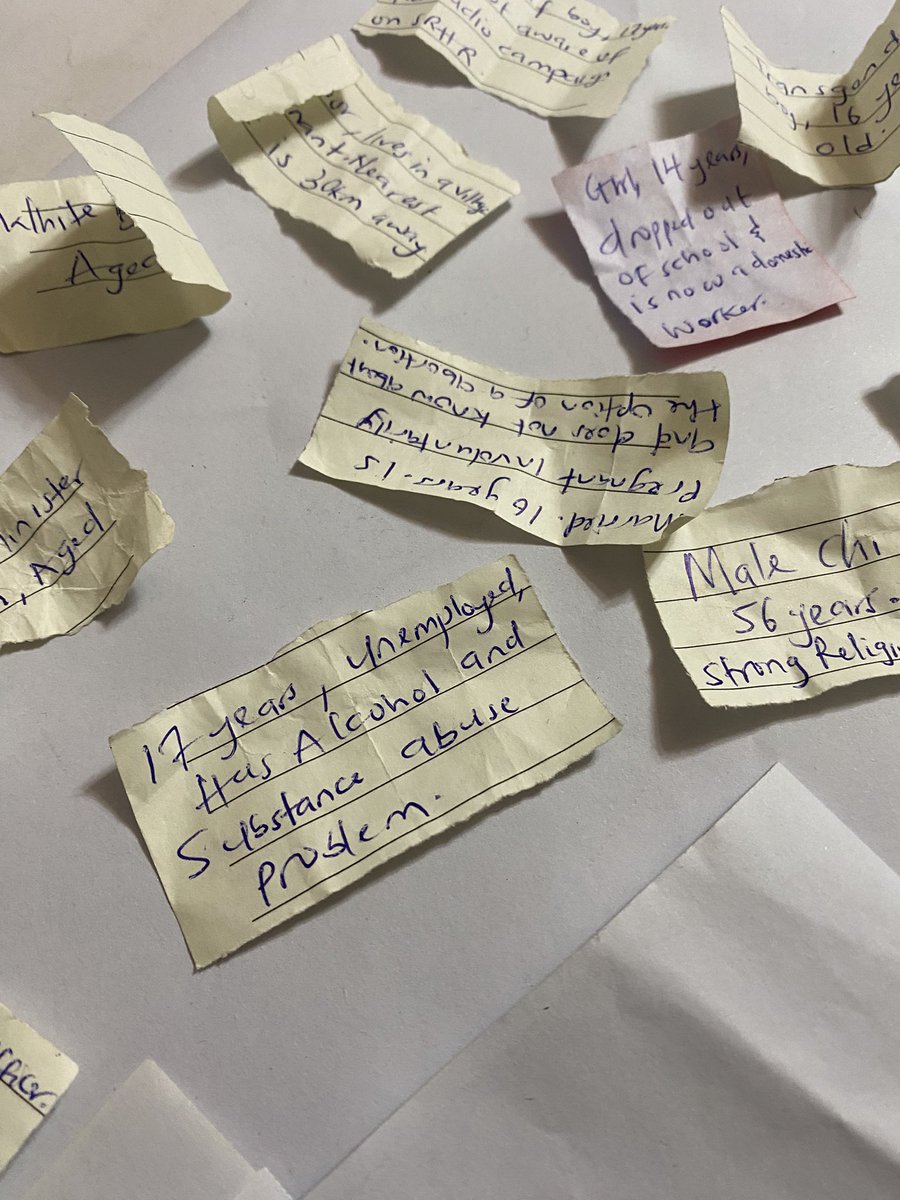 boy, 17 years
aware of
radio campaign
on SRHR
lives in a village
Nearest
is 30km away
boy, 16
old.
Girl, 14 years,
dropped out
of school &
is now a domestic
worker.
Aged
Married. 16 years. Is
Pregnant Involuntarily
and does not know about
the option of a abortion.
Minister
Aged
Male Chi
56 years.
Strong Religi
17 years, Unemployed,
Has Alcohol and
Substance abuse
problem.